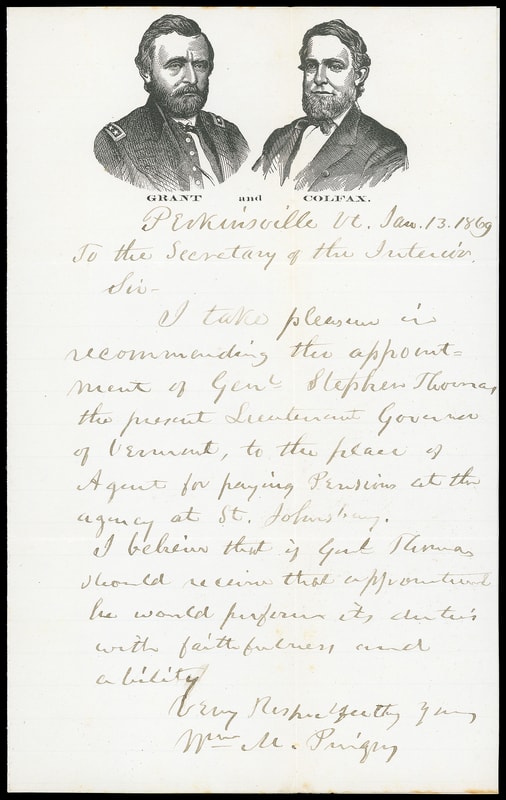 GRANT and COLFAX.
Perkinsville Vt. Jan. 13. 1869
To the Secretary of the Interior.
Sir-
I take pleasure in
recommending the appoint=
ment of Genl. Stephen Thomas
the present Lieutenant Governor
of Vermont, to the place of
Agent for paying Pensions at the
agency at St. Johnsbury.
I believe that if Genl Thomas
should receive that appointment
he would perform its duties
with faithfulness and
ability
Very Respectfully Yours
Wm M. Pingry